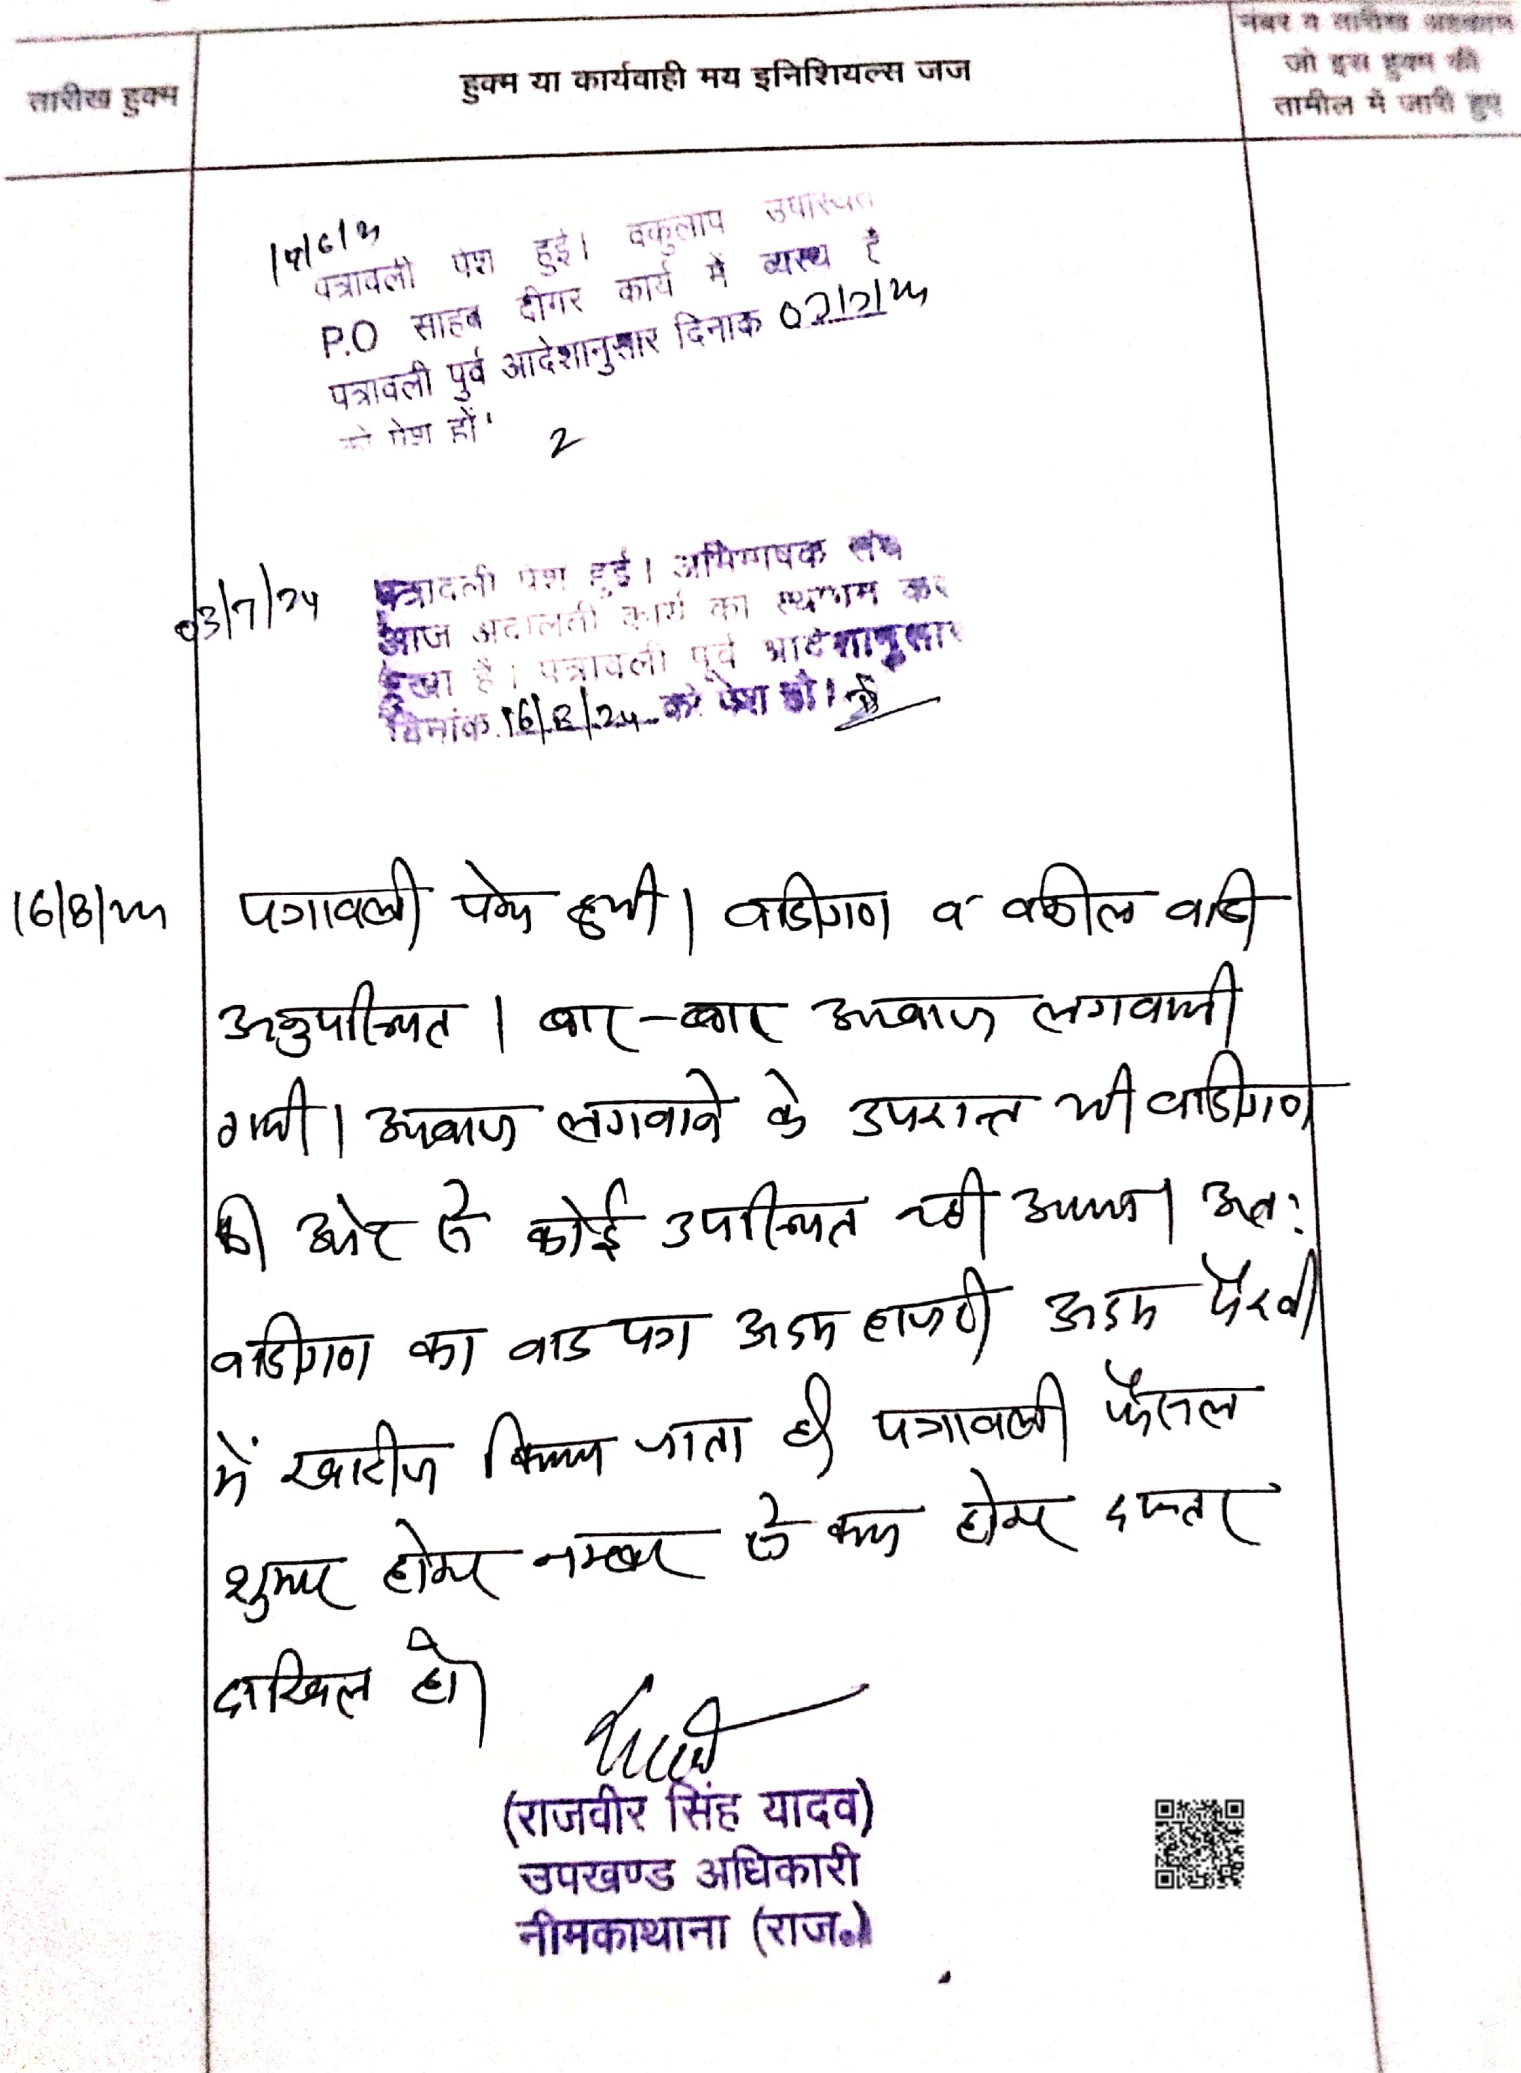 तारीख हुक्म
हुक्म या कार्यवाही मय इनिशियल्स जज
नंबर व तारीख अहकाम
जो इस हुक्म की
तामील में जारी हुए
पत्रावली पेश हुई। वकुलाय उपस्थित
P.O साहब दीगर कार्य में व्यस्थ है
पत्रावली पुर्व आदेशानुसार दिनाक 03/7/24
को पेश हों
2
03/7/24
पत्रावली पेश हुई। अभिभाषक संघ
आज अदालती कार्य का स्थगम कर
रखा है। पत्रावली पूर्व आदेशानुसार
दिनांक 16/8/24 को पेश हो।
16/8/24
पत्रावली पेश हुयी। वादीगण व वकील वादी
अनुपस्थित। बार-बार आवाज लगवायी
गयी। आवाज लगवाने के उपरान्त भी वादीगण
की ओर से कोई उपस्थित नही आया। अतः
वादीगण का वाद पत्र अदम हाजरी अदम पैरवी
में खारीज किया जाता है। पत्रावली फैसल
शुमार होकर नम्बर से कम होकर दफ्तर
दाखिल हो।
(राजवीर सिंह यादव)
उपखण्ड अधिकारी
नीमकाथाना (राज०)